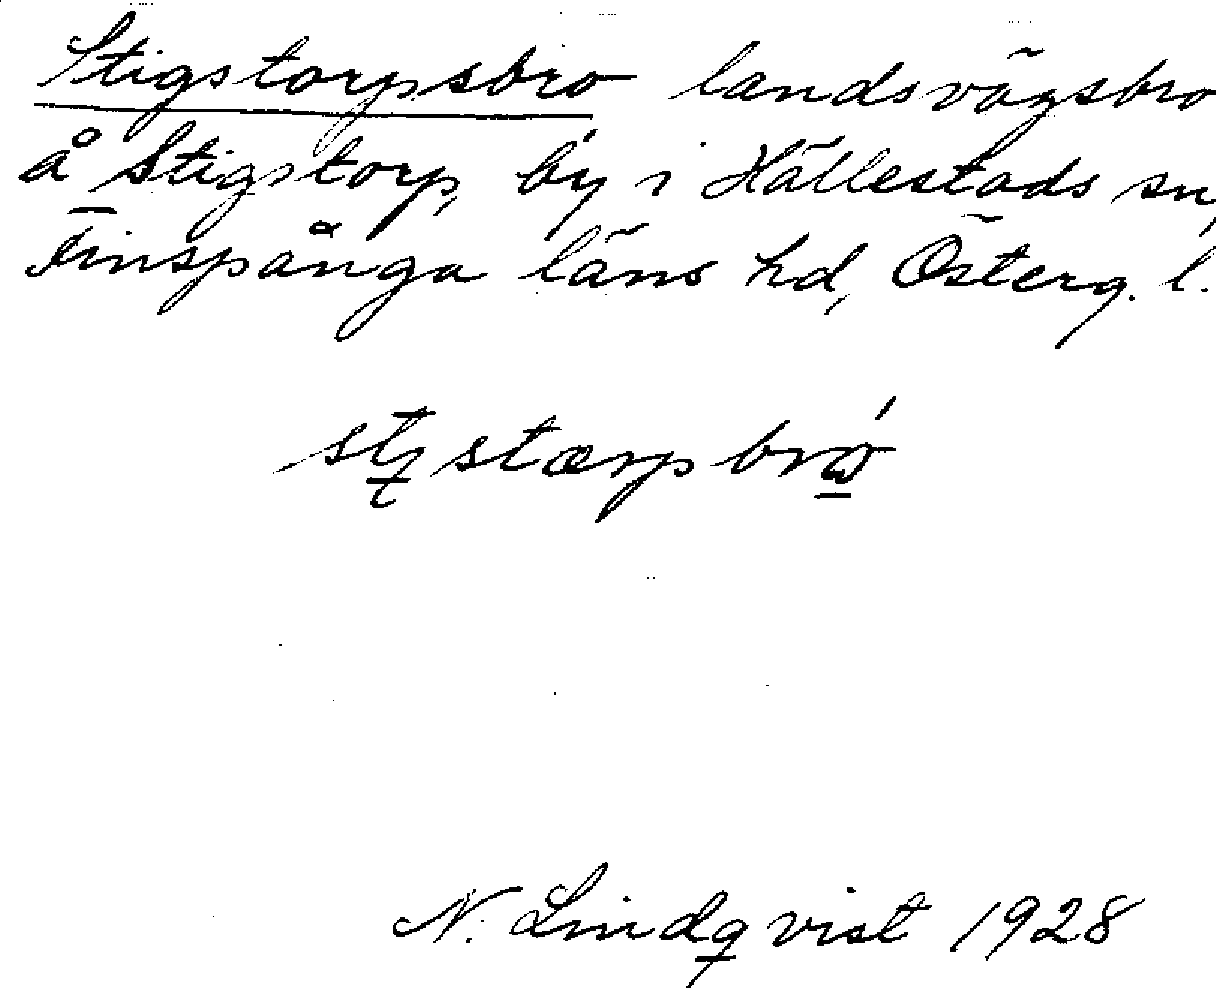 Stigstorpsbro landsvägsbro
å Stigstorp, by i Hällestads sn,
Finspånga läns hd, Österg. l.
N. Lindqvist 1928